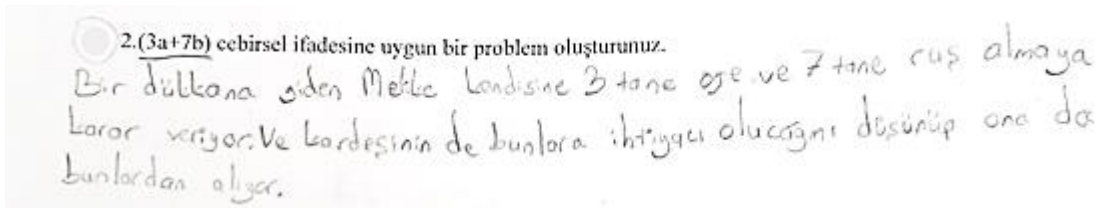 2.(3a+7b) cebirsel ifadesine uygun bir problem oluşturunuz.
Bir dülkana giden Melike kendisine 3 tane oje ve 7 tane ruj almaya
karar veriyor. Ve kardeşinin de bunlara ihtiyacı olucağını düşünüp ona da
bunlardan alıyor.